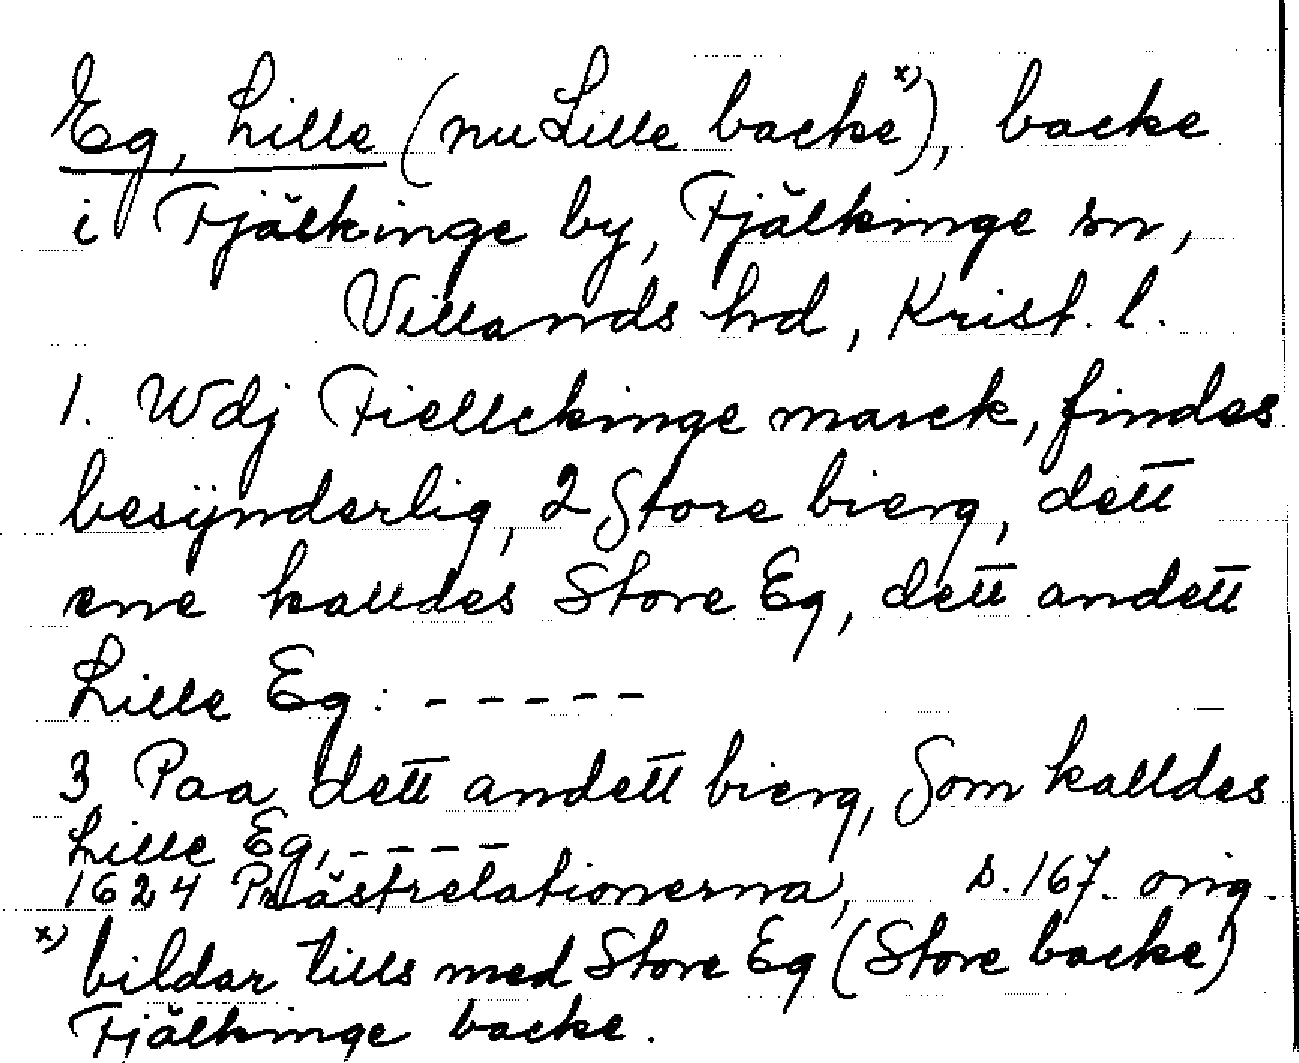 Eg, Lille (nu Lille backe x)), backe
i Fjälkinge by, Fjälkinge sn,
Villands hd, Krist. l.
1. Wdj Fiellckinge marck, findes
besÿnderlig, 2 Store bierg, dett
ene kalldes Store Eg, dett andett
Lille Eg: - - - - -
3 Paa dett andett bierg, Som kalldes
Lille Eg, - - - - -
1624 Prästrelationerna, s. 167. orig.
x) bildar tills med Store Eg (Store backe)
Fjälkinge backe.